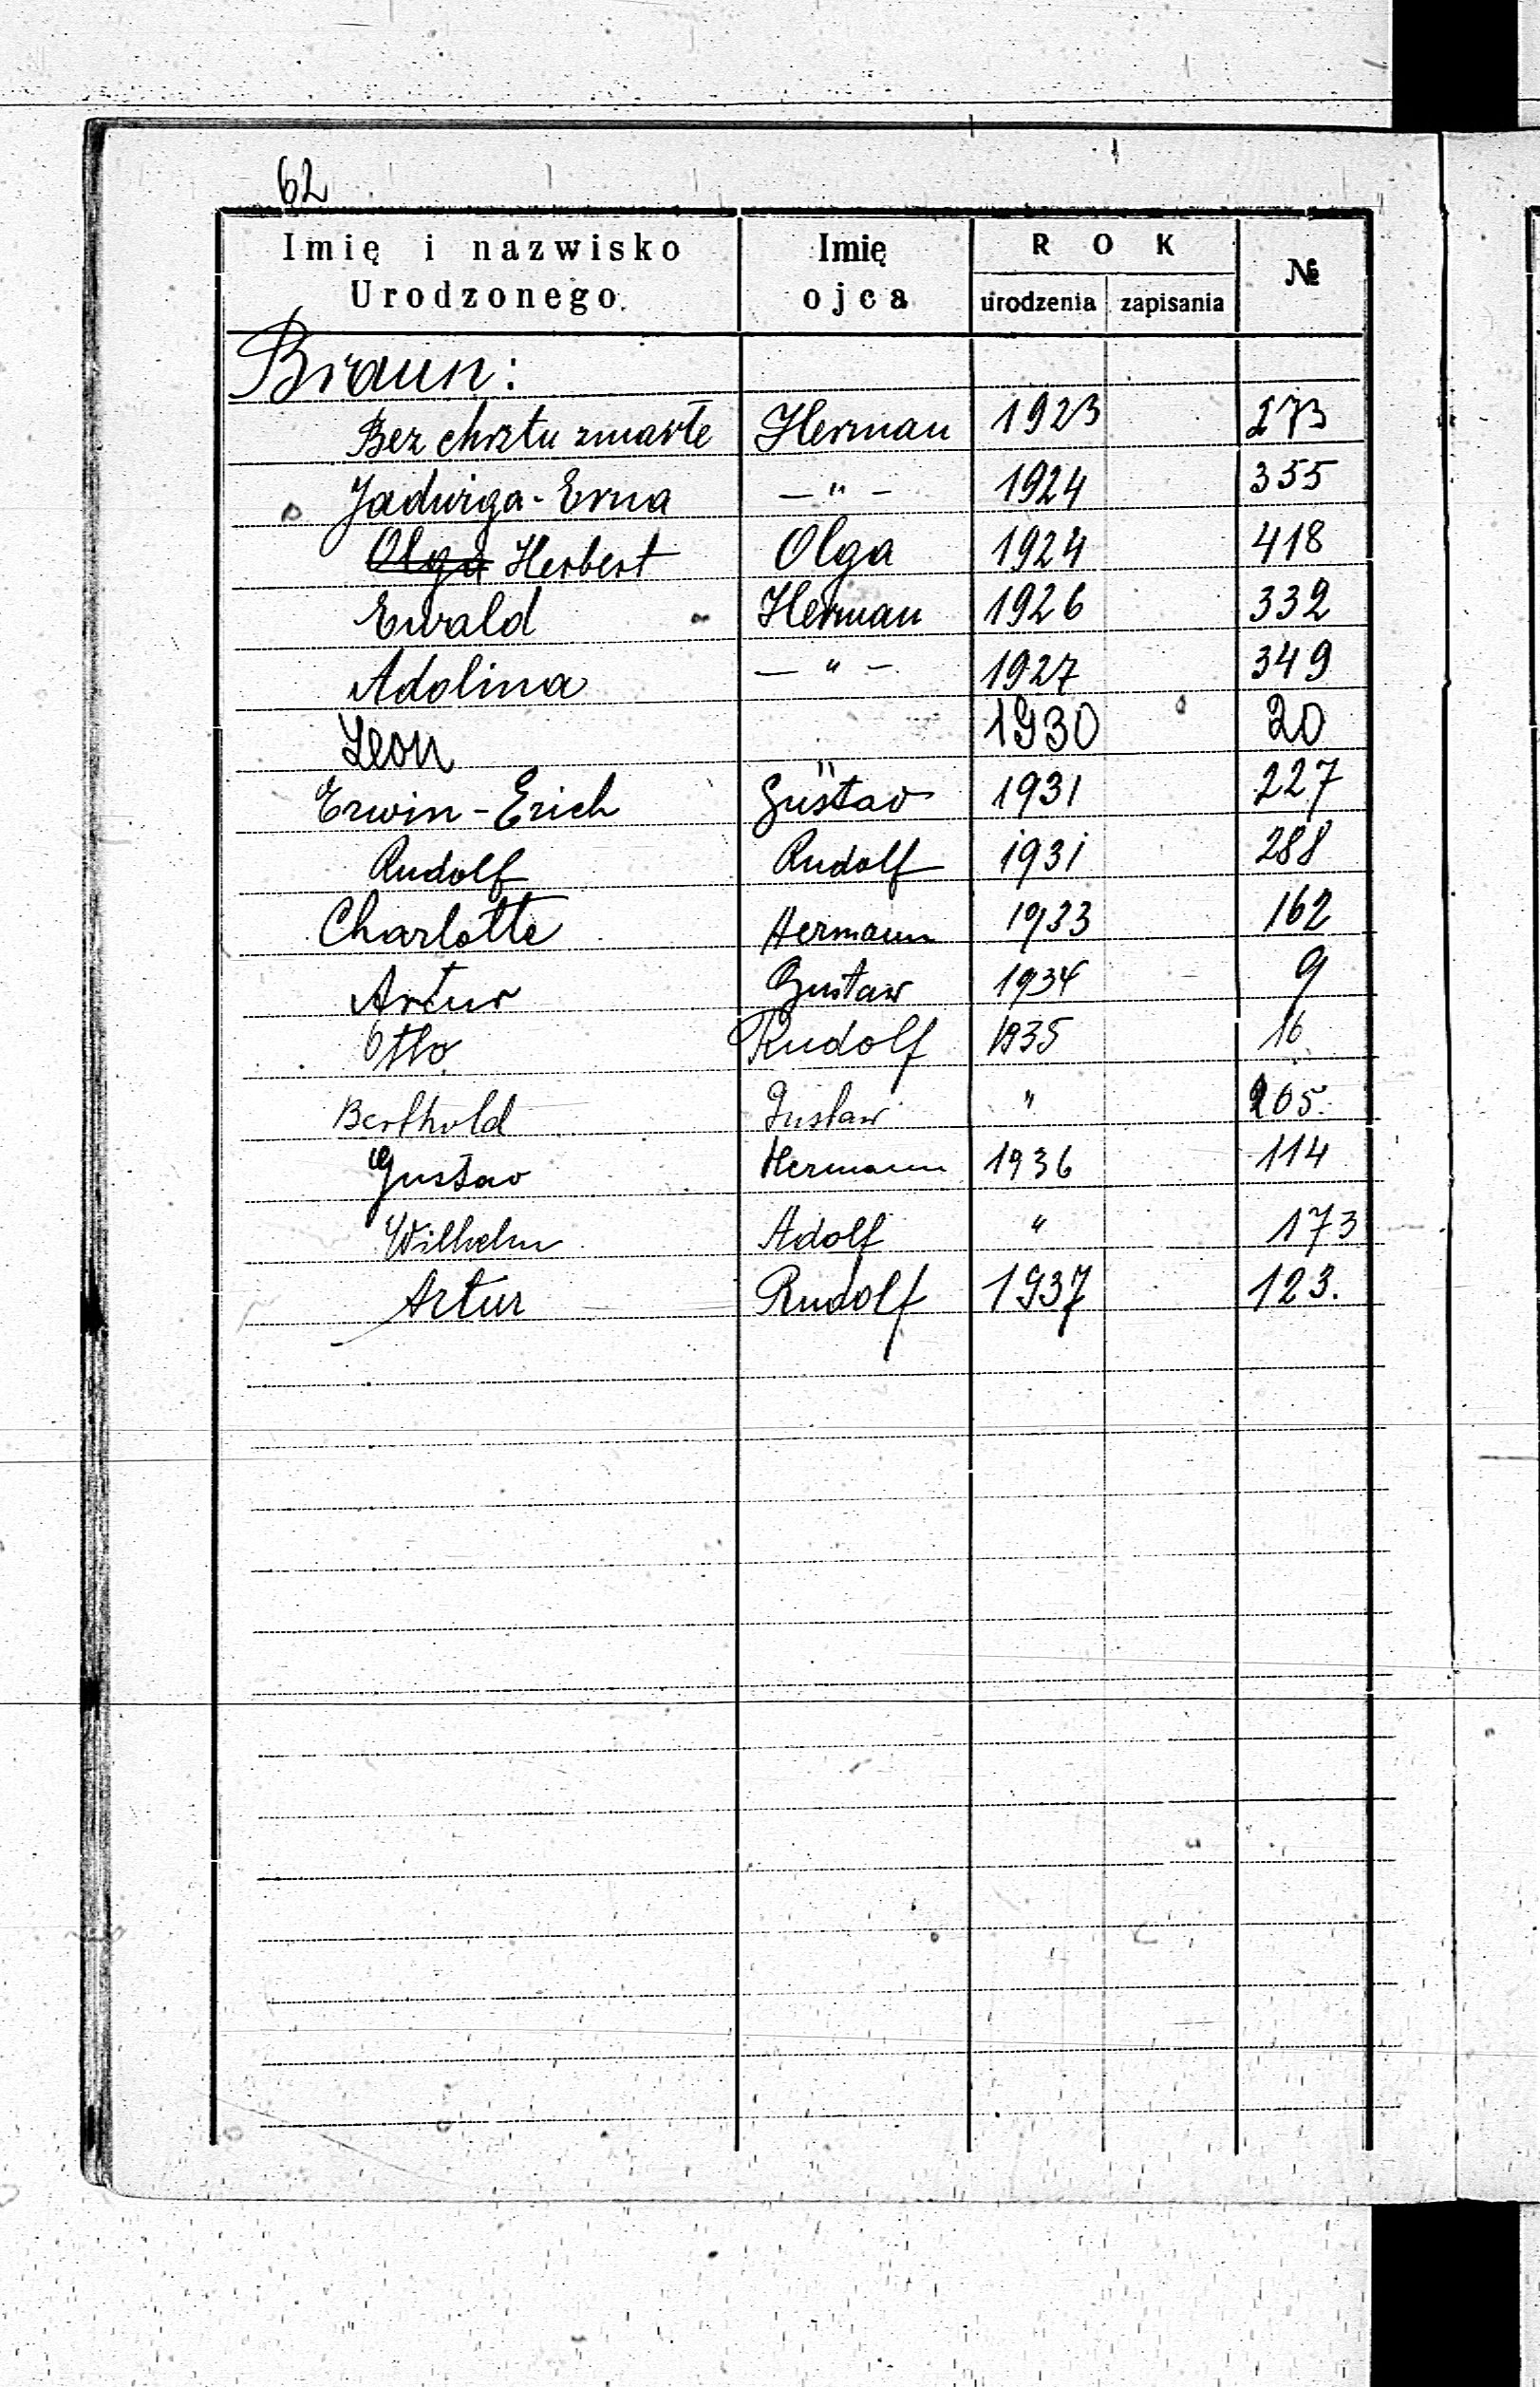 62
Imię i nazwisko Urodzonego. Imię ojca ROK urodzenia zapisania №
Braun:
Bez chrztu zmarłe Herman 1923 273
Jadwiga-Erna —"— 1924 355
Olga Herbert Olga 1924 418
Ewald Herman 1926 332
Adolina —"— 1927 349
Leon " 1930 20
Erwin-Erich Gustav 1931 227
Rudolf Rudolf 1931 288
Charlotte Hermann 1933 162
Artur Gustaw 1934 9
Otto Rudolf 1935 16
Berthold Gustaw " 265.
Gustav Hermann 1936 114
Wilhelm Adolf " 173
Artur Rudolf 1937 123.